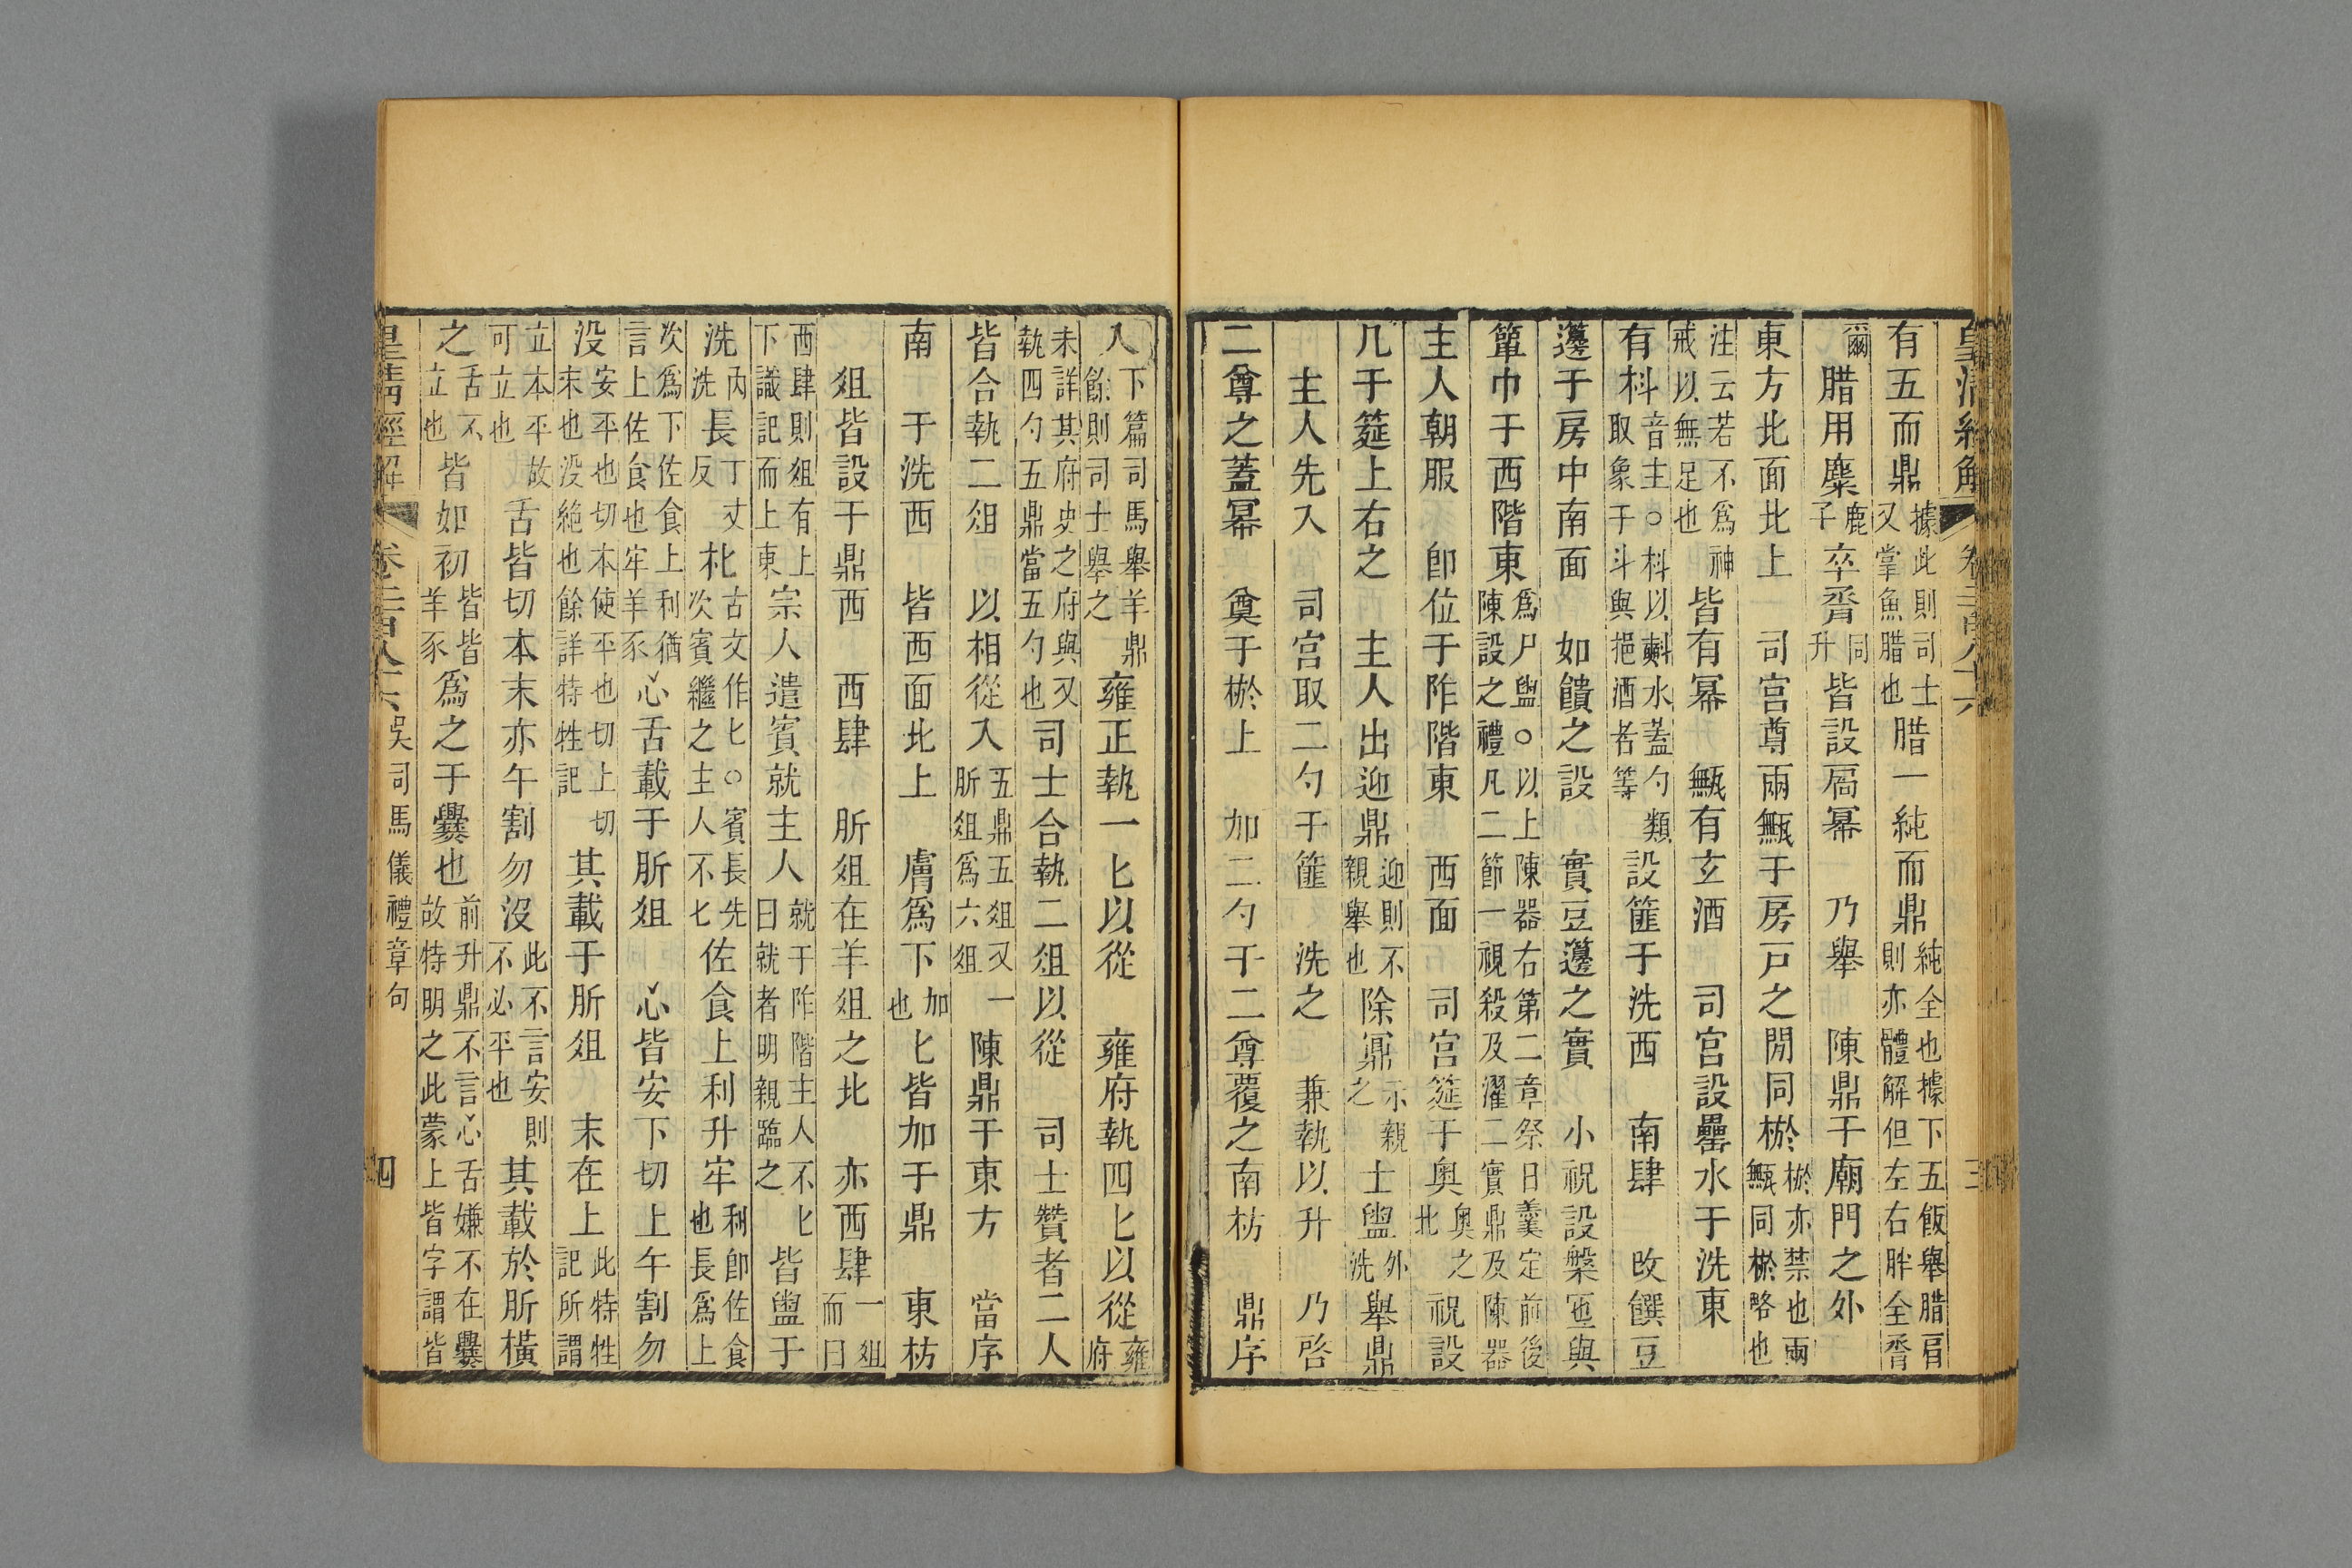 皇清經解　卷二百八十六　三
有五而鼎據此則司士又掌魚腊也腊一純而鼎純全也據下五飯舉腊肩則亦體解但左右胖全脀
爾腊用麋鹿子卒脀同升皆設扃冪　乃舉　陳鼎于廟門之外
東方北面北上　司宮尊兩甒于房戸之閒同棜棜亦禁也兩甒同棜略也
注云若不爲神戒以無足也皆有冪　甒有玄酒　司宮設罍水于洗東
有枓音主○枓以㪺水蓋勺類取象于斗與挹酒者等設篚于洗西　南肆　改饌豆
籩于房中南面　如饋之設　實豆籩之實　小祝設槃匜與
簞巾于西階東爲尸盥○以上陳器右第二章祭日羹定前後陳設之禮凡二節一視殺及濯二實鼎及陳器
主人朝服　卽位于阼階東　西面　司宮筵于奥奥之北祝設
几于筵上右之　主人出迎鼎迎則不親舉也除鼏示親之士盥外洗舉鼎
主人先入　司宮取二勺于篚　洗之　兼執以升　乃啓
二尊之蓋冪　奠于棜上　加二勺于二尊覆之南枋　鼎序
入下篇司馬舉羊鼎餘則司士舉之雍正執一匕以從　雍府執四匕以從雍府
未詳其府史之府與又執四勺五鼎當五勺也司士合執二俎以從　司士贊者二人
皆合執二俎　以相從入五鼎五俎又一肵俎爲六俎陳鼎于東方　當序
南　于洗西　皆西面北上　膚爲下加也匕皆加于鼎　東枋
俎皆設于鼎西　西肆　肵俎在羊俎之北　亦西肆一俎而曰
西肆則俎有上下識記而上東宗人遣賓就主人就于阼階主人不匕曰就者明親臨之皆盥于
洗內洗長丁丈反朼古文作匕○賓長先次賓繼之主人不匕佐食上利升牢利卽佐食也長爲上
次爲下佐食上利猶言上佐食也牢羊豕心舌載于肵俎　心皆安下切上午割勿
没安平也切本使平也切上切末也没絶也餘詳特牲記其載于肵俎　末在上此特牲記所謂
立本平故可立也舌皆切本末亦午割勿没此不言安則不必平也其載於肵橫
之舌不立也皆如初皆皆羊豕爲之于爨也前升鼎不言心舌嫌不在爨故特明之此蒙上皆字謂皆
皇清經解　卷二百八十六　吳司馬儀禮章句　四